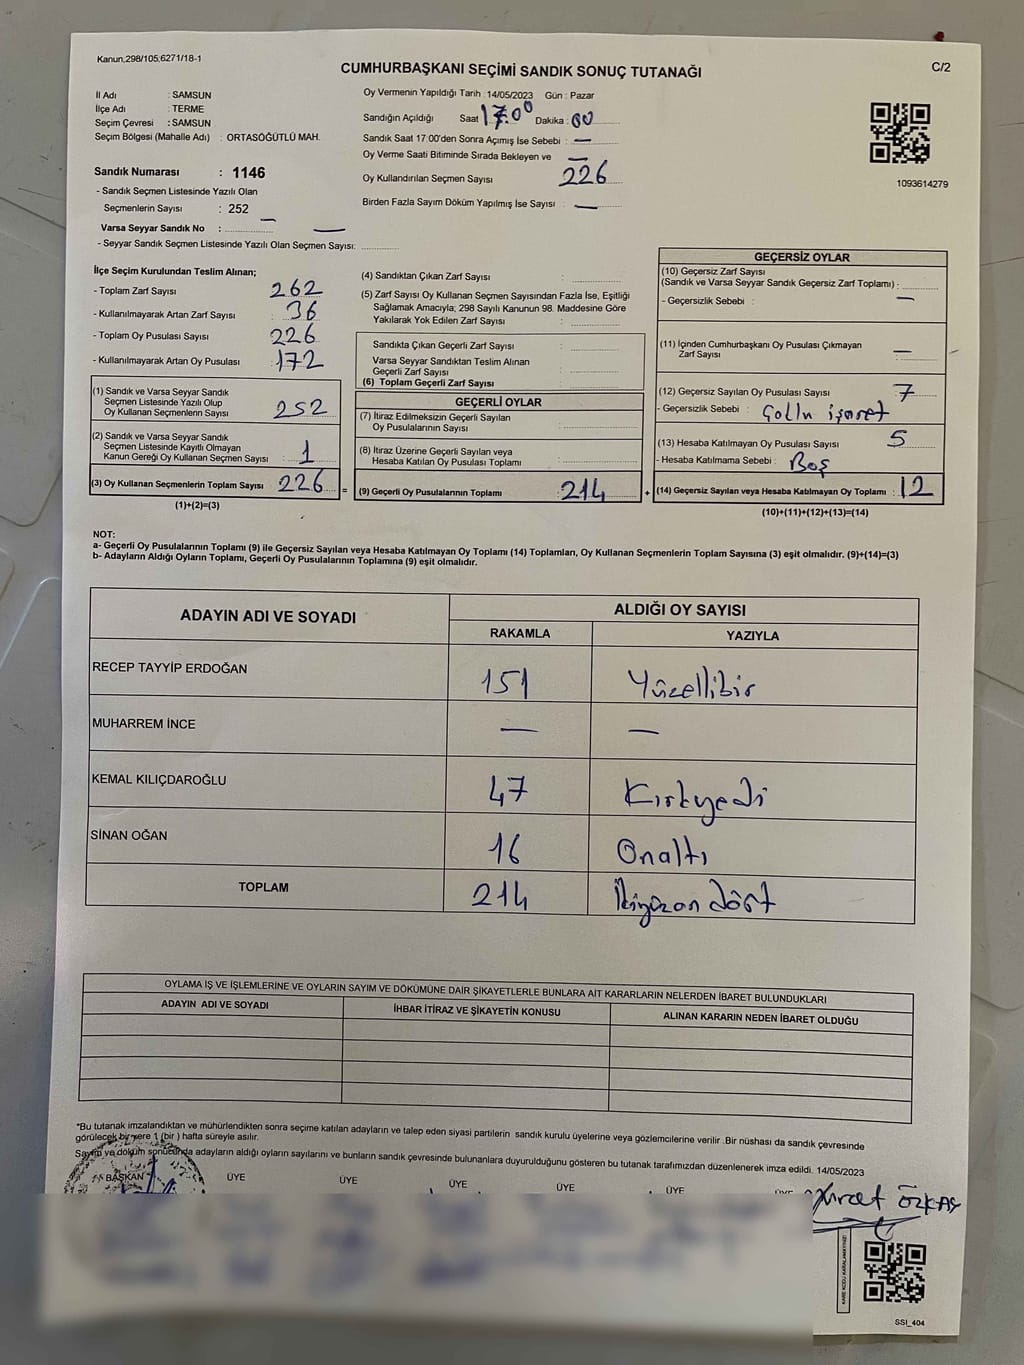 Kanun,298/105;6271/18-1
CUMHURBAŞKANI SEÇİMİ SANDIK SONUÇ TUTANAĞI
C/2
İl Adı : SAMSUN
İlçe Adı : TERME
Seçim Çevresi : SAMSUN
Seçim Bölgesi (Mahalle Adı) : ORTASÖĞÜTLÜ MAH.
Sandık Numarası : 1146
- Sandık Seçmen Listesinde Yazılı Olan
Seçmenlerin Sayısı : 252
Varsa Seyyar Sandık No : —
- Seyyar Sandık Seçmen Listesinde Yazılı Olan Seçmen Sayısı: —
Oy Vermenin Yapıldığı Tarih : 14/05/2023 Gün : Pazar
Sandığın Açıldığı Saat 17.00 Dakika : 00
Sandık Saat 17.00'den Sonra Açımış İse Sebebi : —
Oy Verme Saati Bitiminde Sırada Bekleyen ve —
Oy Kullandırılan Seçmen Sayısı 226
Birden Fazla Sayım Döküm Yapılmış İse Sayısı : —
1093614279
İlçe Seçim Kurulundan Teslim Alınan;
- Toplam Zarf Sayısı 262
- Kullanılmayarak Artan Zarf Sayısı : 36
- Toplam Oy Pusulası Sayısı 226
- Kullanılmayarak Artan Oy Pusulası : 172
(1) Sandık ve Varsa Seyyar Sandık
Seçmen Listesinde Yazılı Olup
Oy Kullanan Seçmenlerin Sayısı : 252
(2) Sandık ve Varsa Seyyar Sandık
Seçmen Listesinde Kayıtlı Olmayan
Kanun Gereği Oy Kullanan Seçmen Sayısı : 1
(3) Oy Kullanan Seçmenlerin Toplam Sayısı : 226 =
(1)+(2)=(3)
(4) Sandıktan Çıkan Zarf Sayısı :
(5) Zarf Sayısı Oy Kullanan Seçmen Sayısından Fazla İse, Eşitliği
Sağlamak Amacıyla; 298 Sayılı Kanunun 98. Maddesine Göre
Yakılarak Yok Edilen Zarf Sayısı :
Sandıkta Çıkan Geçerli Zarf Sayısı :
Varsa Seyyar Sandıktan Teslim Alınan
Geçerli Zarf Sayısı :
(6) Toplam Geçerli Zarf Sayısı :
GEÇERLİ OYLAR
(7) İtiraz Edilmeksizin Geçerli Sayılan
Oy Pusulalarının Sayısı :
(8) İtiraz Üzerine Geçerli Sayılan veya
Hesaba Katılan Oy Pusulası Toplamı :
(9) Geçerli Oy Pusulalarının Toplamı : 214 +
GEÇERSİZ OYLAR
(10) Geçersiz Zarf Sayısı
(Sandık ve Varsa Seyyar Sandık Geçersiz Zarf Toplamı) :
- Geçersizlik Sebebi : —
(11) İçinden Cumhurbaşkanı Oy Pusulası Çıkmayan
Zarf Sayısı : —
(12) Geçersiz Sayılan Oy Pusulası Sayısı : 7
- Geçersizlik Sebebi : Çoklu işaret
(13) Hesaba Katılmayan Oy Pusulası Sayısı : 5
- Hesaba Katılmama Sebebi : Boş
(14) Geçersiz Sayılan veya Hesaba Katılmayan Oy Toplamı : 12
(10)+(11)+(12)+(13)=(14)
NOT:
a- Geçerli Oy Pusulalarının Toplamı (9) ile Geçersiz Sayılan veya Hesaba Katılmayan Oy Toplamı (14) Toplamları, Oy Kullanan Seçmenlerin Toplam Sayısına (3) eşit olmalıdır. (9)+(14)=(3)
b- Adayların Aldığı Oyların Toplamı, Geçerli Oy Pusulalarının Toplamına (9) eşit olmalıdır.
ADAYIN ADI VE SOYADI
ALDIĞI OY SAYISI
RAKAMLA YAZIYLA
RECEP TAYYİP ERDOĞAN 151 Yüzellibir
MUHARREM İNCE — —
KEMAL KILIÇDAROĞLU 47 Kırkyedi
SİNAN OĞAN 16 Onaltı
TOPLAM 214 İkiyüzon dört
OYLAMA İŞ VE İŞLEMLERİNE VE OYLARIN SAYIM VE DÖKÜMÜNE DAİR ŞİKAYETLERLE BUNLARA AİT KARARLARIN NELERDEN İBARET BULUNDUKLARI
ADAYIN ADI VE SOYADI İHBAR İTİRAZ VE ŞİKAYETİN KONUSU ALINAN KARARIN NEDEN İBARET OLDUĞU
*Bu tutanak imzalandıktan ve mühürlendikten sonra seçime katılan adayların ve talep eden siyasi partilerin sandık kurulu üyelerine veya gözlemcilerine verilir .Bir nüshası da sandık çevresinde
görülecek bir yere 1 (bir ) hafta süreyle asılır.
Sayım ve döküm sonucunda adayların aldığı oyların sayılarını ve bunların sandık çevresinde bulunanlara duyurulduğunu gösteren bu tutanak tarafımızdan düzenlenerek imza edildi. 14/05/2023
BAŞKAN ÜYE ÜYE ÜYE ÜYE ÜYE ÜYE
ÖZKAŞ
SSİ_404